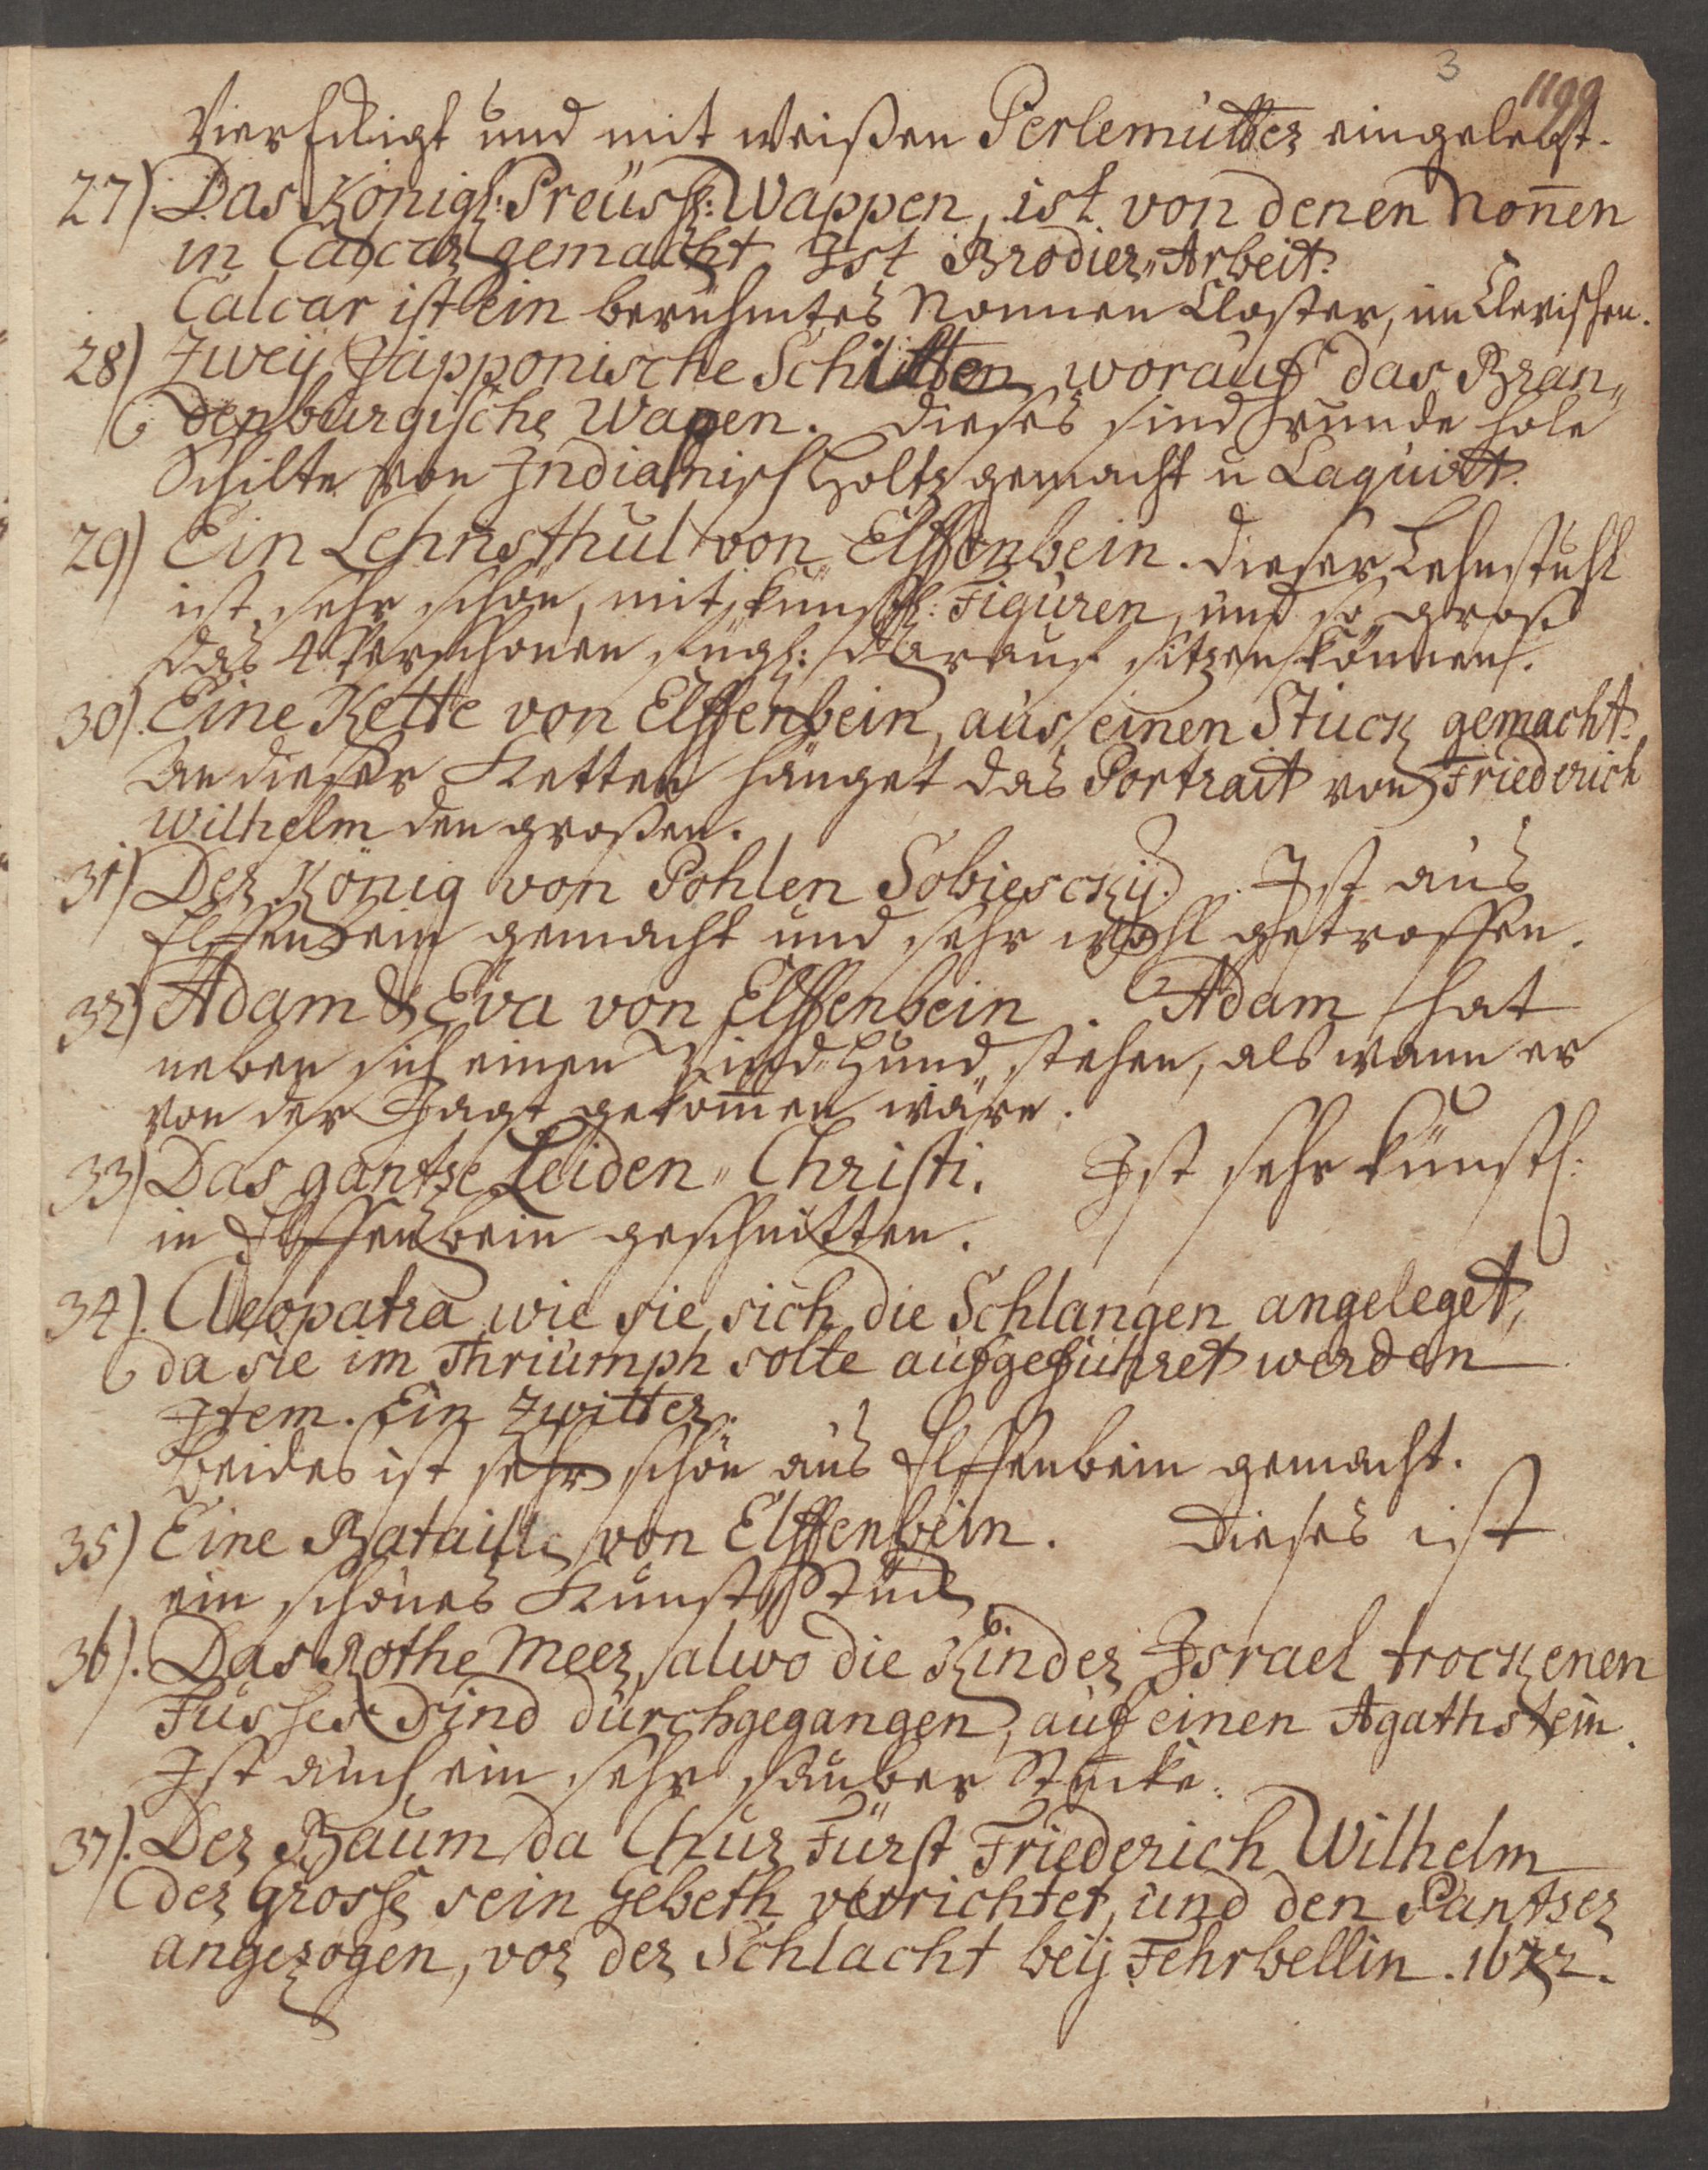 3
1199
Vierfüßigt und mit weißen Perlemutter eingelegt.
27) Das Königl: Preüsch: Wappen, ist von denen Nonen
in Calcar gemacht, Ist Brodier„Arbeit.
Calcar ist ein berühmtes Nonnen Closter, im Clevischen.
28) Zweij Japponische Schilten worauf das Bran„
denburgische Wapen. Dieses sind runde hole
Schilte von Indianisch Holtz gemacht u Laquirt.
29) Ein Lehnsthul von Elffenbein. Dieser Lehnstuhl
ist sehr schön, mit künstl: Figuren, und so groß
das 4 Perschonen fügl: darauf sitzen können.
30) Eine Kette von Elffenbein, aus einen Stück gemacht.
An dieser Ketten hänget das Portrait von Friederich
Wilhelm den großen.
31) Der König von Pohlen Sobiesckij. Ist aus
Elffenbein gemacht und sehr wohl getroffen.
32) Adam & Eva von Elffenbein. Adam hat
neben sich einen Wind„Hund stehen, als wann er
von der Jagt gekomen wäre.
33) Das gantze Leiden„Christi. Ist sehr künstl:
in Elffenbein geschnitten.
34). Cleopatra wie sie sich die Schlangen angeleget,
da sie im Thriumph solte aufgeführet werden
Item. Ein Zwitter.
Beides ist sehr schön aus Elffenbein gemacht.
35) Eine Bataille von Elffenbein. Dieses ist
ein schönes Kunst„Stück
36). Das Rothe Meer, alwo die Kinder Israel trockenen
Fusses sind durchgegangen, auf einen Agathstein.
Ist auch ein sehr sauber Stücke.
37). Der Baum da Chur Fürst Friederich Wilhelm
der Grosse sein Gebeth verrichtet, und den Pantzer
angezogen, vor der Schlacht beij Fehrbellin. 1672.